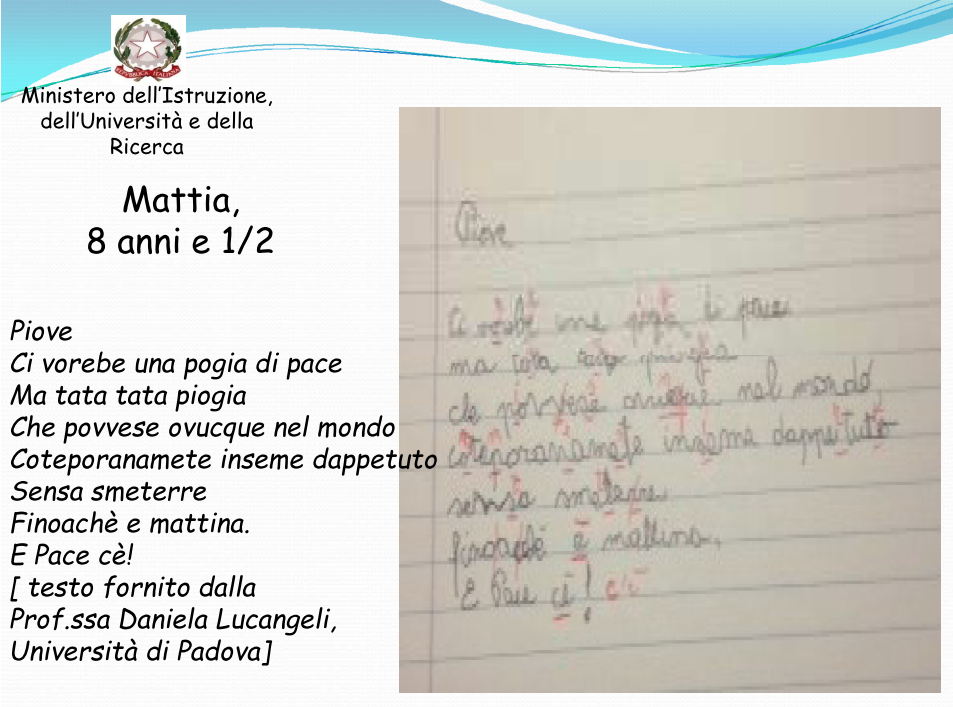 REPUBBLICA ITALIANA
Ministero dell'Istruzione,
dell'Università e della
Ricerca
Mattia,
8 anni e 1/2
Piove
Ci vorebe una pogia di pace
Ma tata tata piogia
Che povvese ovucque nel mondo
Coteporanamete inseme dappetuto
Sensa smeterre
Finoachè e mattina.
E Pace cè!
[ testo fornito dalla
Prof.ssa Daniela Lucangeli,
Università di Padova]
Piove
Ci vorebe una pogia di pace
ma tata tata
che povvese nel mondo,
coteporanamete inseme dappetuto
sensa smeterre
finoachè è mattina.
E Pace cè! c'è